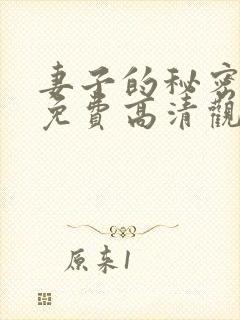 妻子的秘密
免費高清觀
原来1